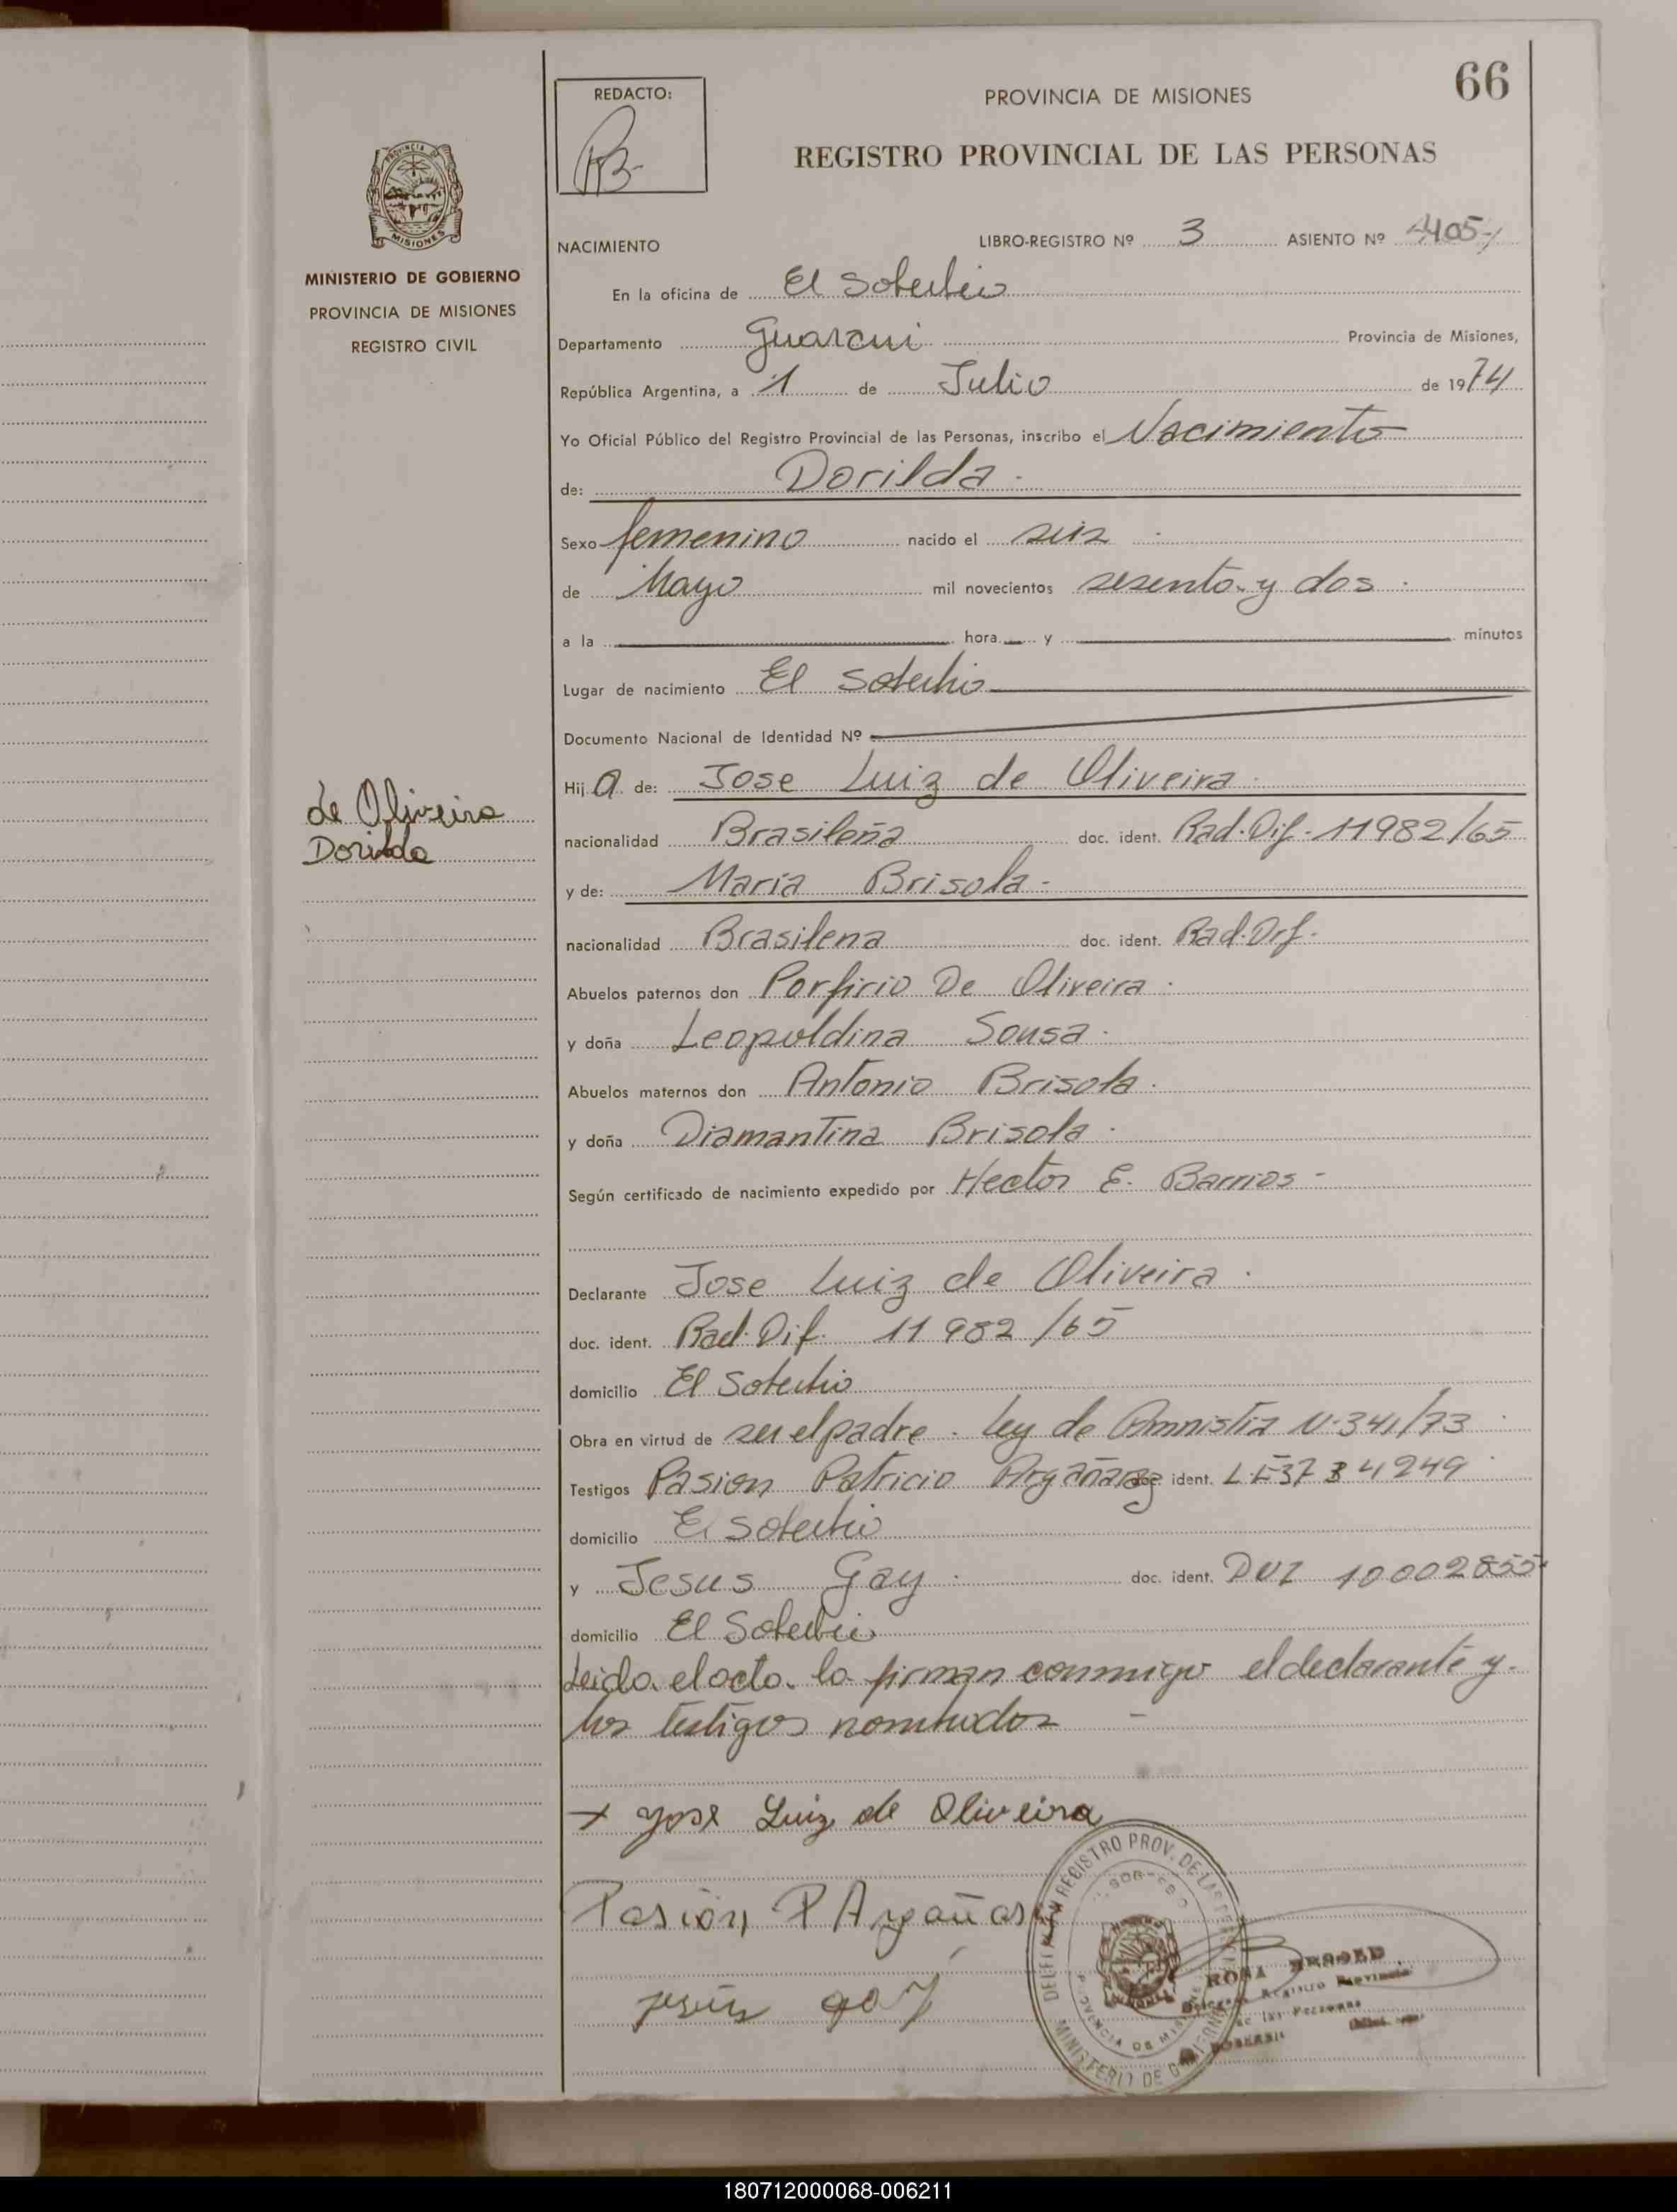 66
REDACTO:
PROVINCIA DE MISIONES
REGISTRO PROVINCIAL DE LAS PERSONAS
PROVINCIA DE
MISIONES
MINISTERIO DE GOBIERNO
PROVINCIA DE MISIONES
REGISTRO CIVIL
NACIMIENTO
LIBRO-REGISTRO Nº 3 ASIENTO Nº 405
En la oficina de El Soberbio
Departamento Guarani Provincia de Misiones,
República Argentina, a 1 de Julio de 1974
Yo Oficial Público del Registro Provincial de las Personas, inscribo el Nacimiento
de: Dorilda
Sexo femenino nacido el seis
de Mayo mil novecientos sesenta y dos
a la hora y minutos
Lugar de nacimiento El Soberbio
Documento Nacional de Identidad Nº
Hija de: Jose Luiz de Oliveira
de Oliveira
Dorilda
nacionalidad Brasileña doc. ident. Rad. Dif. 11982/65
y de: Maria Brisola -
nacionalidad Brasilena doc. ident. Rad. Dif.
Abuelos paternos don Porfirio De Oliveira
y doña Leopoldina Sousa
Abuelos maternos don Antonio Brisola
y doña Diamantina Brisola
Según certificado de nacimiento expedido por Hector E. Barrios -
Declarante Jose Luiz de Oliveira
doc. ident. Rad. Dif. 11982/65
domicilio El Soberbio
Obra en virtud de ser el padre. Ley de Amnistia N. 341/73
Testigos Pasion Patricio Argañaraz doc. ident. L.E 3734249
domicilio El Soberbio
y Jesus Gay doc. ident. DNI 10002855
domicilio El Soberbio
Leida el acta la firman conmigo el declarante y
los testigos nombrados -
x Jose Luiz de Oliveira
Pasión P Argañaras
jesus gay
REGISTRO PROV. DE LAS
MINISTERIO DE
ROSA
180712000068-006211